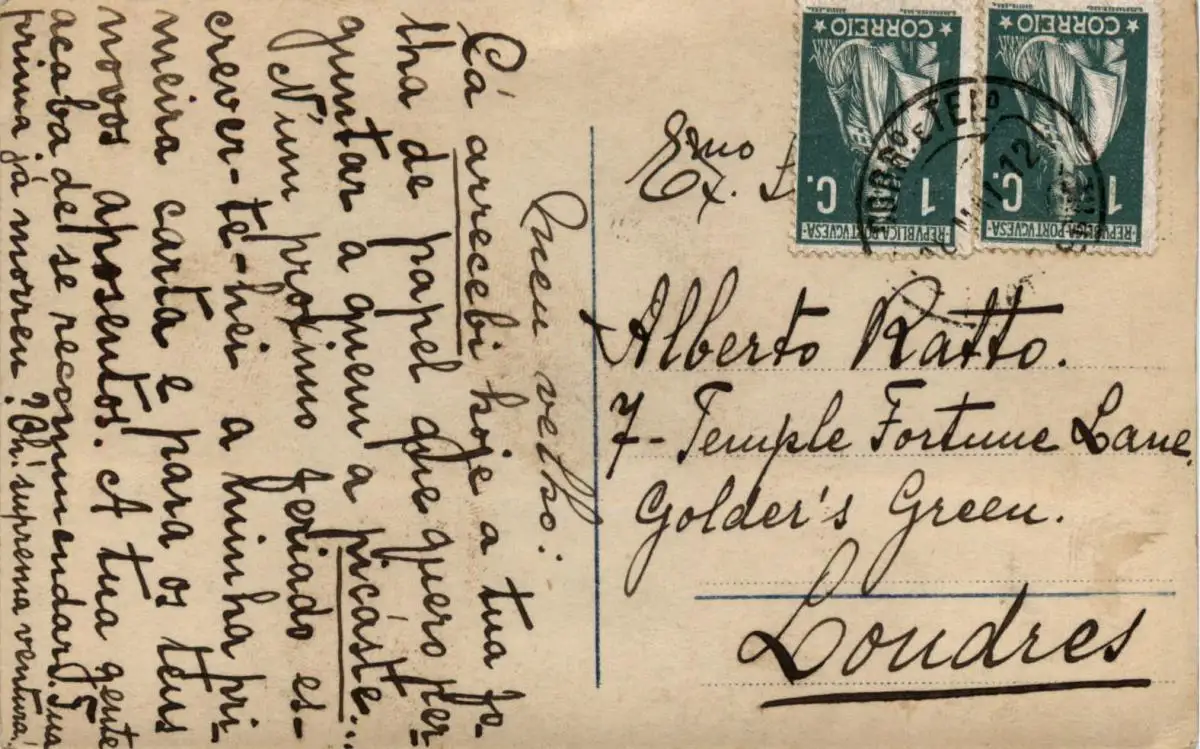 Meu velho:
Cá arrecebi hoje a tua fo-
lha de papel que quero per-
guntar a quem a picáste...
N'um proximo feriado es-
crever-te-hei a minha pri-
meira carta e para os teus
novos aposentos. A tua gente
acaba de se recommendar. Tua
prima já morreu? Oh! suprema ventura!
CORREIO
1 C.
REPVBLICA PORTVGVESA
CORREIO
1 C.
REPVBLICA PORTVGVESA
Exmo
Alberto Ratto.
7- Temple Fortune Lane,
Golder's Green.
Londres